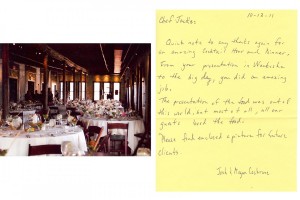 10-13-11
Chef Jackie,
Quick note to say thanks again for
an amazing Cocktail Hour and Dinner.
From your presentation in
to the big day, you did an amazing
job.
The presentation of the food was out of
this world, but most of all, all our
guests loved the food.
Please find enclosed a picture for future
clients.
Josh & Megan